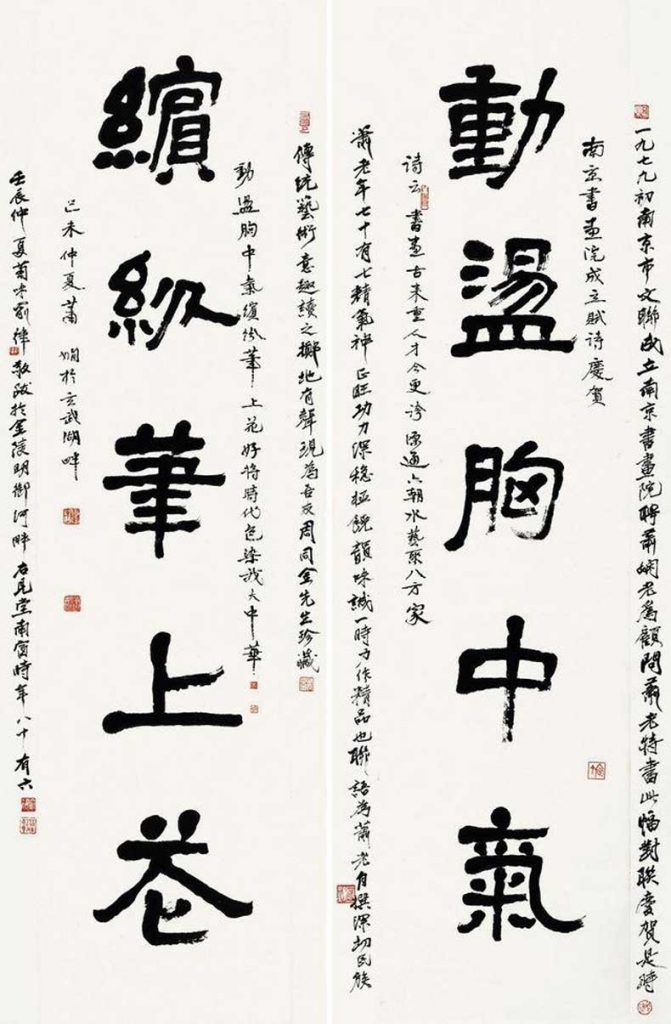 一九七九初南京市文聯成立南京書畫院聘蕭嫻老為顧問蕭老特書此幅對联慶賀是時
南京書畫院成立賦詩慶賀
動盪胸中氣
诗云 書畫古来重人才今更誇源通六朝水藝聚八方家
蕭老年七十有七精氣神正旺功力深稳拙饒韻味誠一時力作精品也聯語為蕭老自撰深切民族
傳统藝術意趣讀之擲地有聲現為吾友周同金先生珍藏
動盪胸中氣繽纷筆上花好将時代色染我大中華
繽紛筆上花
己未仲夏蕭嫻於玄武湖畔
壬辰仲夏菊味 律敬跋於金陵明御河畔 堂南窗時年八十有六